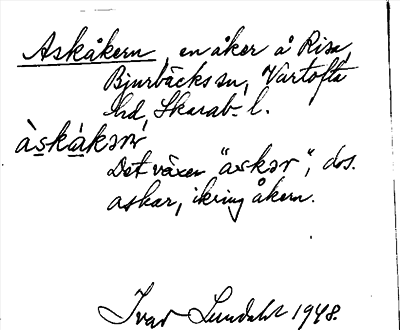 Askåkern, en åker å Risa,
Bjurbäcks sn, Vartofta
hd, Skarab. l.
àskàkǝrń
Det växer "askǝr", dvs.
askar, ikring åkern.
Ivar Lundahl 1948.